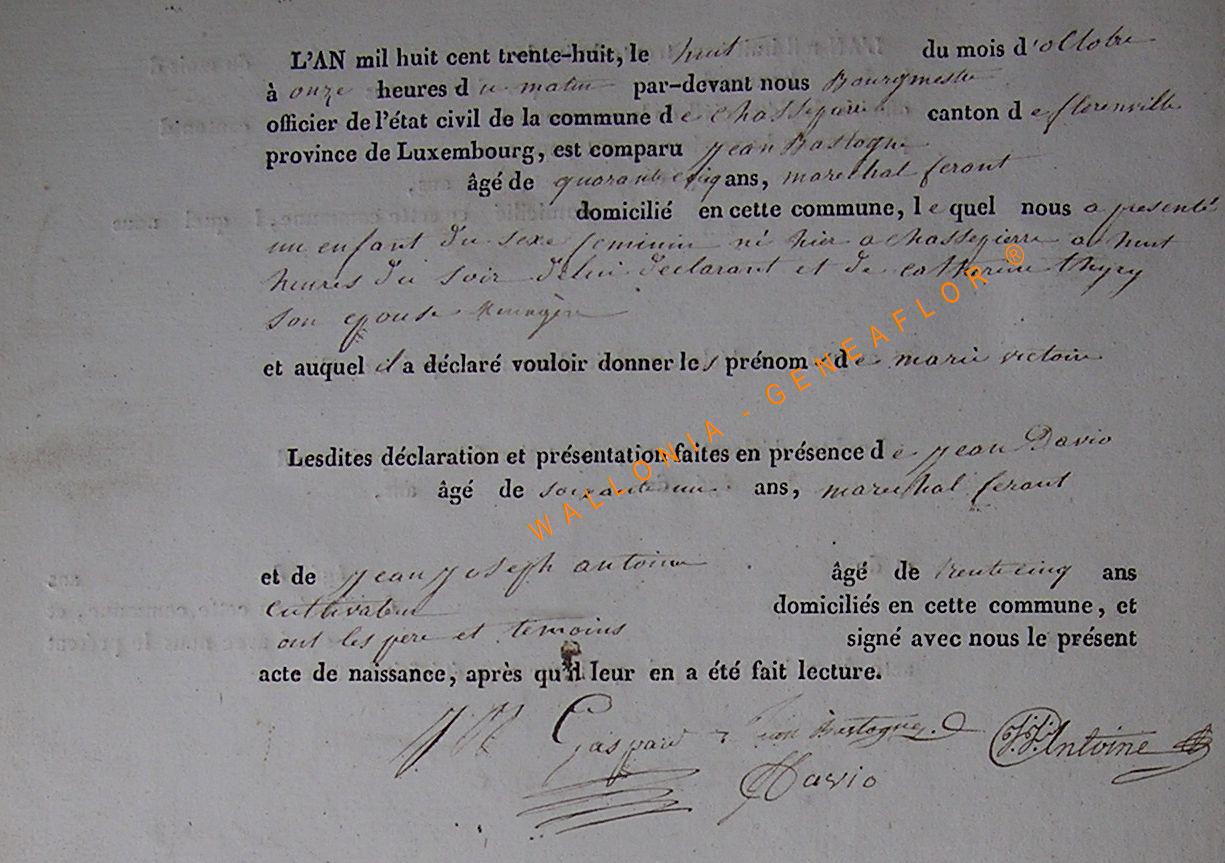 L'AN mil huit cent trente-huit, le huit du mois d'octobre
à onze heures du matin par-devant nous Bourgmestre
officier de l'état civil de la commune de chassepierre canton de florenville
province de Luxembourg, est comparu jean Bastogne
âgé de quarante cinq ans, marechal ferant
domicilié en cette commune, lequel nous a presenté
un enfant du sexe feminin né hier a chassepierre a huit
heures du soir de lui declarant et de catherine thyry
son epouse menagère
et auquel il a déclaré vouloir donner les prénoms de marie victoire
Lesdites déclaration et présentation faites en présence de jean Davio
âgé de soixante un ans, marechal ferant
et de jean joseph antoine âgé de trente cinq ans
cultivateur domiciliés en cette commune, et
ont les pere et temoins signé avec nous le présent
acte de naissance, après qu'il leur en a été fait lecture.
Gaspard jean Bastogne J.J. Antoine
Davio
WALLONIA - GENEAFLOR ®